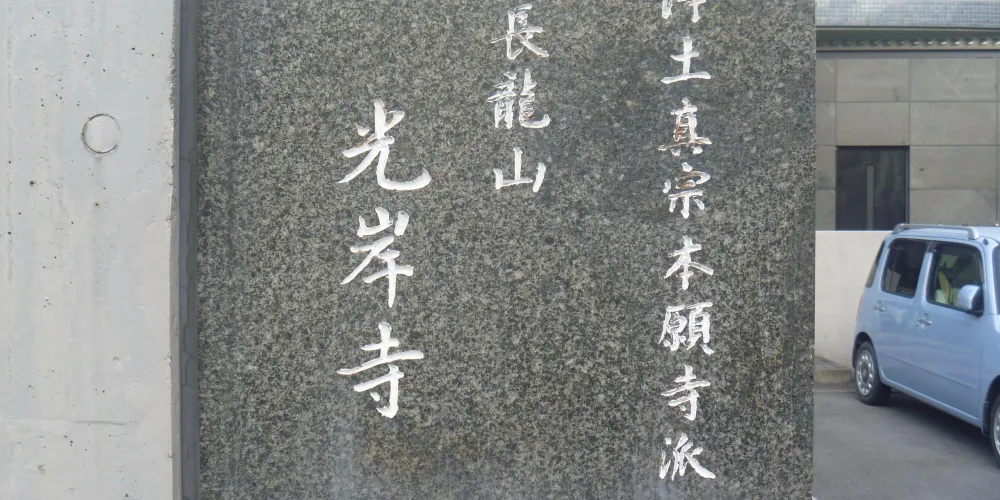 浄土真宗本願寺派
長龍山
光岸寺